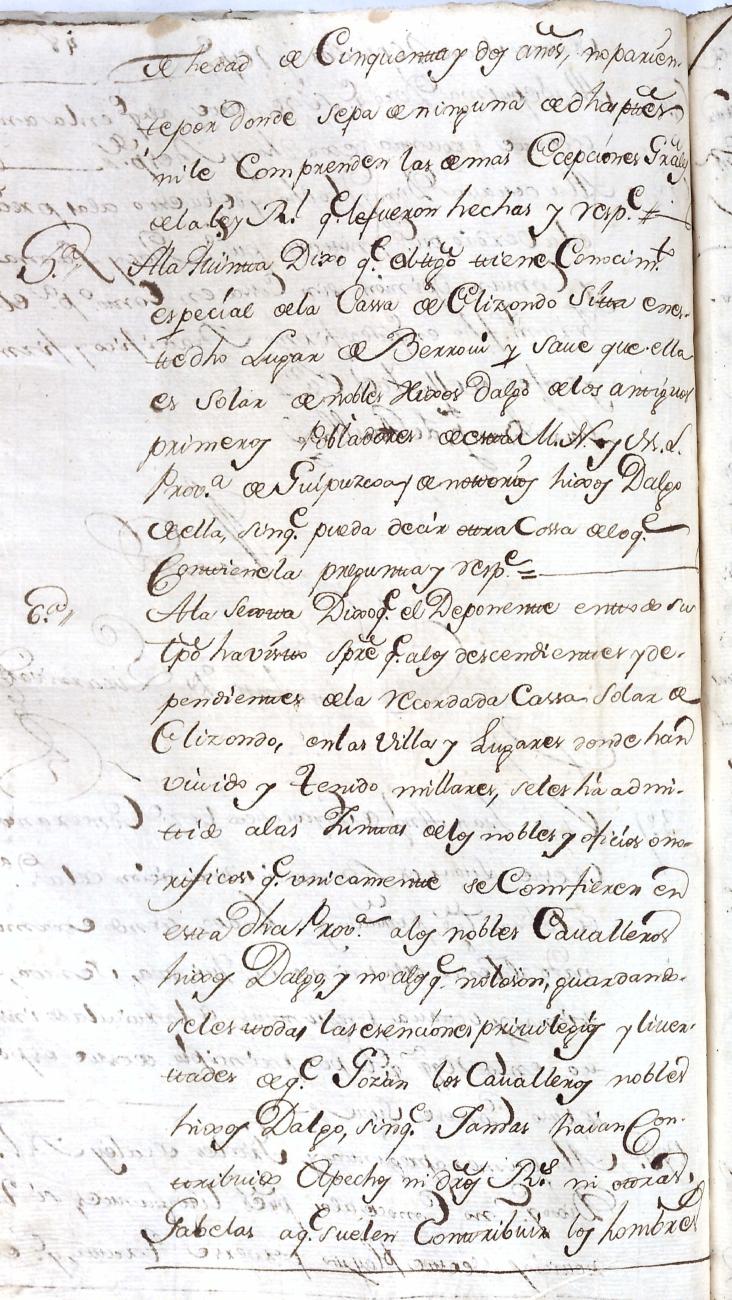 de hedad de Cinquenta y dos años, no parien-
te por donde sepa de ninguna de dhas ptes
ni le Comprenden las demas Ecepciones Grales
de la ley Rl. qe. le fueron hechas y respe.
5.a A la Quinta Dixo qe. el ttgo tiene Conocimto
especial de la Cassa de Elizondo Sitta en es-
te dho Lugar de Berrovi y save que ella
es Solar de nobles Hixos Dalgo de los antiguos
primeros Pobladores de esta M. N. y M. L.
Prov.a de Guipuzcoa y de notorios hixos Dalgo
de ella, sin qe. pueda decir otra Cossa de lo qe.
Contiene la pregunta y respe.
6.a A la Sexta Dixo qe. el Deponente en todo su
tpo ha visto spre qe. a los descendientes y de-
pendientes de la recordada Cassa Solar de
Elizondo, en las Villas y Lugares donde han
vivido y tenido millares, se les ha admi-
tido a las Juntas de los nobles y oficios ono-
rificos qe. unicamente se Confieren en
esta dha Prov.a a los nobles Cavalleros
hixos Dalgo, y no a los qe. no lo son, guardando-
seles todas las esenciones privilegios y liver-
tades de qe. Gozan los Cavalleros nobles
hixos Dalgo, sin qe. Jamas haian Con-
tribuido Apechos ni dros Rs. ni otras
Gabelas a qe. suelen Contribuir los hombres